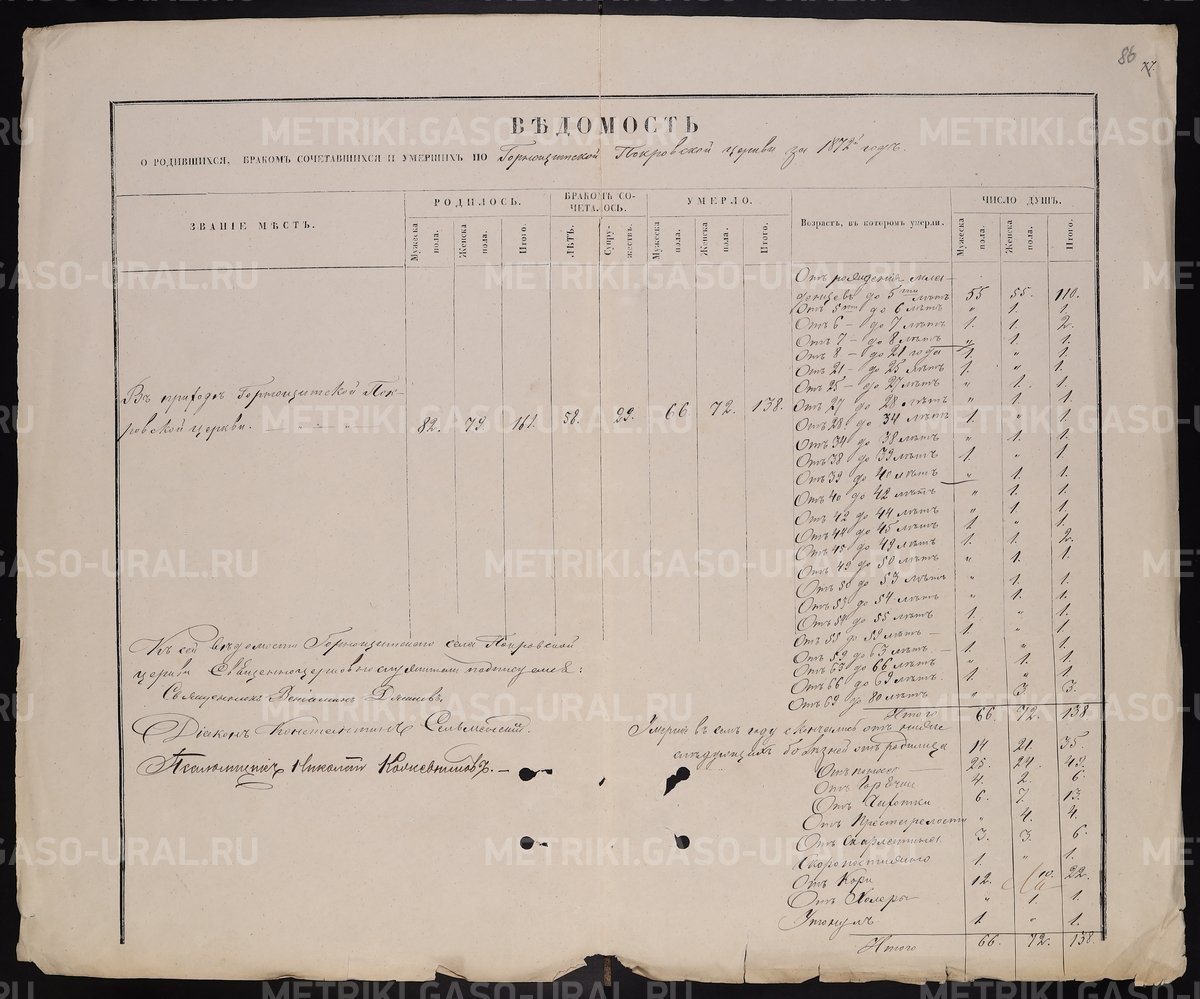 86 77.
ВѢДОМОСТЬ
О РОДИВШИХСЯ, БРАКОМЪ СОЧЕТАВШИХСЯ И УМЕРШИХЪ ПО Горнощитской Покровской церкви за 1872й годъ.
ЗВАНІЕ МѢСТЪ. РОДИЛОСЬ. БРАКОМЪ СОЧЕТАЛОСЬ. УМЕРЛО. Возрастъ, въ которомъ умерли. ЧИСЛО ДУШЪ.
Мужеска пола. Женска пола. Итого. ЛѢТЪ. Супружествъ. Мужеска пола. Женска пола. Итого. Мужеска пола. Женска пола. Итого.
Отъ рожденія мла-
денцевъ до 5ти лѣтъ 55 55. 110.
Отъ 5ти до 6 лѣтъ " 1. 1.
Отъ 6 – до 7 лѣтъ 1. 1. 2.
Отъ 7 – до 8 лѣтъ " 1. 1.
Отъ 8 – до 21 года 1. " 1.
Отъ 21 – до 25 лѣтъ 1. " 1.
Отъ 25 – до 27 лѣтъ " 1. 1.
Въ приходѣ Горнощитской Пок-
ровской церкви. 82. 79. 161. 58. 29. 66. 72. 138.
Отъ 27 до 28 лѣтъ " 1. 1.
Отъ 28 до 34 лѣтъ 1. " 1.
Отъ 34 до 38 лѣтъ " 1. 1.
Отъ 38 до 39 лѣтъ 1. " 1.
Отъ 39 до 40 лѣтъ " 1. 1.
Отъ 40 до 42 лѣтъ " 1. 1.
Отъ 42 до 44 лѣтъ " 1. 1.
Отъ 44 до 45 лѣтъ 1. " 1.
Отъ 45 до 49 лѣтъ 1. 1. 2.
Отъ 49 до 50 лѣтъ " 1. 1.
Отъ 50 до 53 лѣтъ " 1. 1.
Отъ 53 до 54 лѣтъ " 1. 1.
Отъ 54 до 55 лѣтъ 1. " 1.
Отъ 55 до 59 лѣтъ 1. " 1.
Отъ 59 до 63 лѣтъ 1. " 1.
Отъ 63 до 66 лѣтъ " 1. 1.
Отъ 66 до 69 лѣтъ 1. " 1.
Отъ 69 до 80 лѣтъ " 3. 3.
Итого 66. 72. 138
Къ сей вѣдомости Горнощитскаго села Покровской
церкви Священноцерковнослужители подписуемся:
Священникъ Веніаминъ
Діаконъ Константинъ Сельменскій.
Псаломщикъ Николай
въ семъ году скончались отъ ниже
слѣдующихъ болѣзней отъ родимца 14 21. 35.
Отъ поноса 25. 24. 49.
Отъ Горячки 4. 2. 6.
Отъ Чахотки 6. 7. 13.
Отъ Престарелости " 4. 4.
Отъ Скарлатины 3. 3. 6.
Скоропостижно 1. " 1.
Отъ Кори 12. 10. 22.
Отъ Холеры " 1. 1.
Утонулъ 1 " 1.
Итого 66. 72. 138.
METRIKI.GASO-URAL.RU